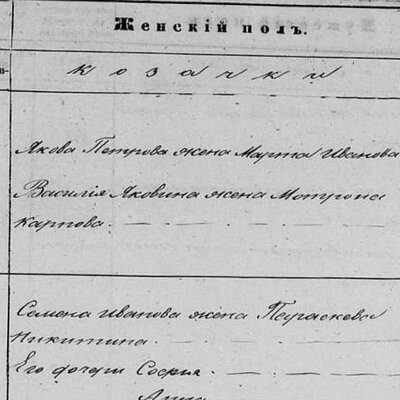 Женскій полъ.
козачки
Якова Петрова жена Марта Иванова
Василія Яковина жена Мотрона
Карпова.
Семена Иванова жена Параскева
Никитина
Его дочери София
Анна